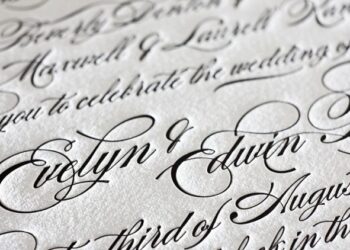 Beverly Denton &
Maxwell & Laurell
you to celebrate the wedding of
Evelyn & Edwin
third of August
in the